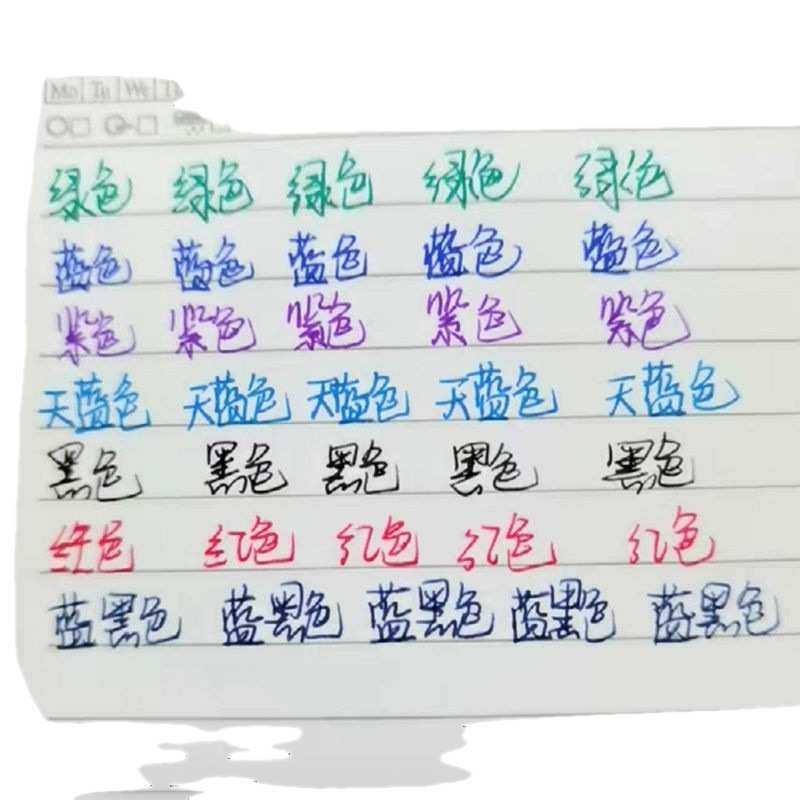 Mo Tu We T
绿色 绿色 绿色 绿色 绿色
蓝色 蓝色 蓝色 蓝色 蓝色
紫色 紫色 紫色 紫色 紫色
天蓝色 天蓝色 天蓝色 天蓝色 天蓝色
黑色 黑色 黑色 黑色 黑色
红色 红色 红色 红色 红色
蓝黑色 蓝黑色 蓝黑色 蓝黑色 蓝黑色